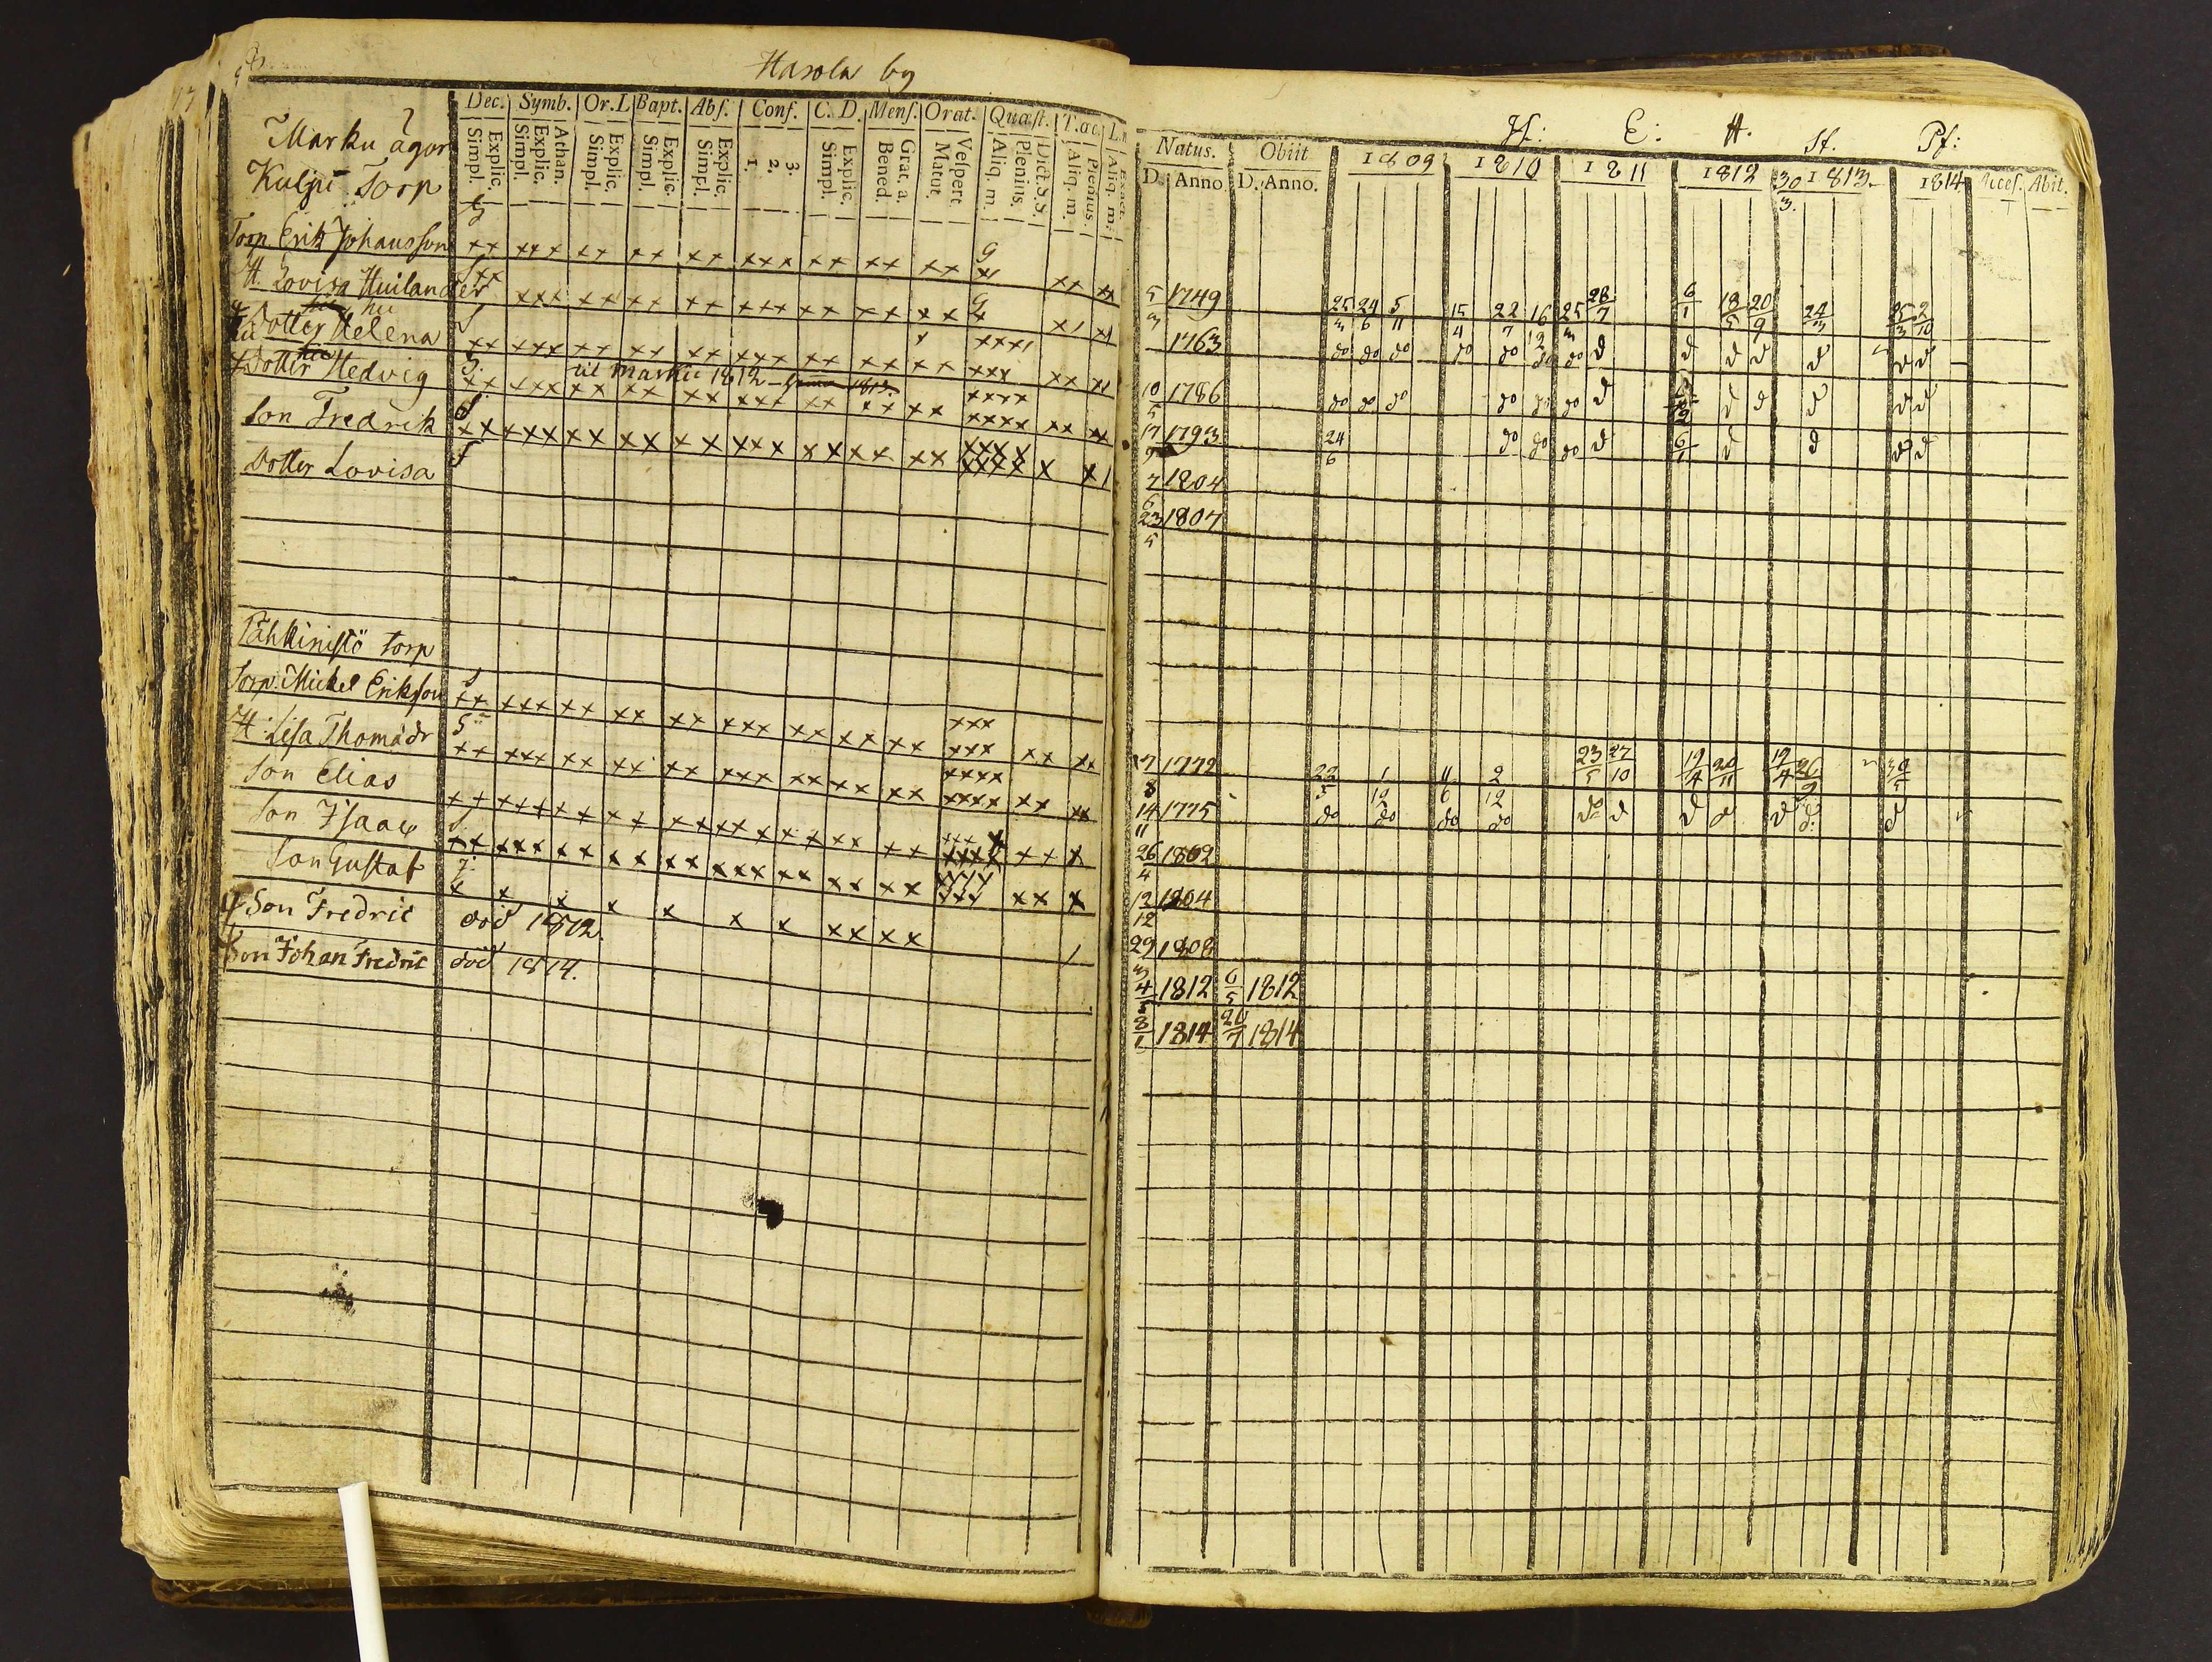 Harola by
Marku ägor
Kulju Torp
Dec. Symb. Or. L Bapt. Abs. Conf. C. D. Mens. Orat. Quæst. T. œc.
Explic. Simpl. Athan. Explic. Simpl. Explic. Simpl. Explic. Simpl. Explic. Simpl. 3. 2. 1. Explic. Simpl. Grat. a. Bened. Vespert Matut. Dict. S. S. Plenius. Aliq. m. Plenius. Aliq. m. Aliq. m.
Natus. Obiit 1809 1810 1811 1812 30/3 1813 1814 Acces. Abit.
D. Anno D. Anno.
E: H. St. Ps:
Torp Erik Johansson 5/3 1749 25/3 24/6 5/11 15/4 22/7 16/12 25/3 28/7 6/1 18/5 20/9 24/3 25/3 2/10
H. Lovisa Huilander 1763 do do do do do do do d d d d d d d
Dotter Helena 10/5 1786 do do do do do do d d d d d d
Dotter Hedvig til Marku 1812 17/9 1793 24/6 do do do d 6/1 d d d d
Son Fredrik 7/6 1804
Dotter Lovisa 23/5 1807
Pähkinistö torp
Torp. Mickel Erikson 17/8 1772 22/5 1/12 11/6 2/12 23/5 27/10 19/4 20/11 19/4 26/9 30/5
H. Lisa Thomädr 14/11 1775 do do do do do d d d d d: d
Son Elias 26/4 1802
Son Isaac 12/12 1804
Son Gustaf 29/3 1808
Son Fredric död 1812. 4/5 1812 6/5 1812
Son Johan Fredric död 1814. 8/1 1814 20/7 1814